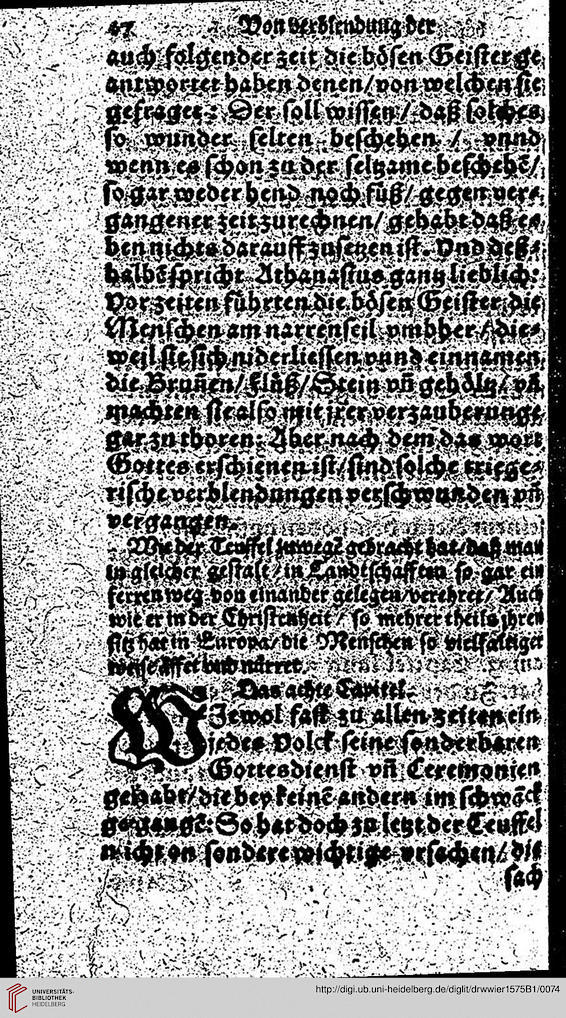 47 Von verblendung der
auch folgender zeit die bösen Geister ge
antwortet haben denen/von welchen sie
gefraget: Der soll wissen/ daß solches
so wunder selten beschehen / vnnd
wenn es schon zu der seltzame beschehẽ/
so gar weder hend noch füß/ gegen ver-
gangener zeit zurechnen/ gehabt daß es
ben nichts darauff zusetzen ist. Vnd deß-
halbẽ spricht Athanasius gantz lieblich:
Vor zeiten führten die bösen Geister die
Menschen am narrenseil vmbher/ die-
weil sie sich niderliessen vnnd einnamen
die Bruñen/ flüß/ Stein vñ gehöltz/ vñ
machten sie also mit jrer verzauberunge
gar zu thoren: Aber nach dem das wort
Gottes erschienen ist/ sind solche triege-
rische verblendungen verschwunden vñ
vergangen.
Wie der Teuffel zuwegẽ gebracht hat/daß man
in gleicher gestalt/in Landtschafften so gar ein
ferren weg von einander gelegen/verehret/ Auch
wie er in der Christenheit/ so mehrer theils jhren
sitz hat in Europa/die Menschen so vielfaltiger
weise äffet vnd närret.
Das achte Capitel.
WJewol fast zu allen zeiten ein
jedes Volck seine sonderbaren
Gottesdienst vñ Ceremonien
gehabt/die bey keinẽ andern im schwãck
gegangẽ: So hat doch zu letzt der Teuffel
nicht on sondere wichtige vrsachen/ die
sach
UNIVERSITÄTS-
BIBLIOTHEK
HEIDELBERG
http://digi.ub.uni-heidelberg.de/diglit/drwwier1575B1/0074